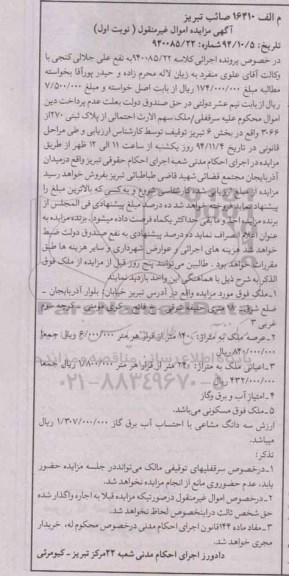 م الف ۱۶۳۱۰ صائب تبریز
آگهی مزایده اموال غیرمنقول ( نوبت اول)
تاریخ: ۹۴/۱۰/۵ شماره: ۹۴۰۰۸۵/۲۲
در خصوص پرونده اجرائی کلاسه ۹۴۰۰۸۵/۲۲به نفع علی جلالی کنجی با
وکالت آقای علوی منفرد به زیان لاله محرم زاده و حیدر پورآقا بخواسته
مطالبه مبلغ ۱۷۴/۰۰۰/۰۰۰ ریال از بابت اصل خواسته و مبلغ ۷/۵۰۰/۰۰۰
ریال از بابت نیم عشر دولتی در حق صندوق دولت بعلت عدم پرداخت دین
اموال محکوم علیه سرقفلی/ملک سهم الارث احتمالی از پلاک ثبتی ۲۷۰از
۳۰۶۶ واقع در بخش ۶ تبریز توقیف توسط کارشناس ارزیابی و طی مراحل
قانونی در تاریخ ۹۴/۱۱/۴ روز یکشنبه از ساعت ۱۱ الی ۱۲ ظهر از طریق
مزایده در اجرای احکام مدنی شعبه اجرای احکام حقوقی تبریز واقع درمیدان
آذربایجان مجتمع قضائی شهید قاضی طباطبائی تبریز بفروش خواهد رسید
مزایده از مبلغ ارزیابی شده کارشناسی شروع و به کسی که بالاترین مبلغ را
پیشنهاد نماید فروخته خواهد شد ده درصد مبلغ پیشنهادی فی المجلس از
برنده مزایده اخذ و مابقی حداکثر یکماه فرصت داده میشود. برنده مزایده به
عنوان اعلام انصراف نماید ده درصد پیشنهادی به نفع صندوق دولت ضبط
خواهد شد هزینه های اجرائی و عوارض شهرداری و سایر هزینه ها طبق
مقررات خواهد بود . طالبین می‌توانند پنج روز قبل از مزایده از ملک فوق
الذکر به شرح ذیل با هماهنگی این واحد بازدید نمایند
۱-ملک فوق مورد مزایده واقع در آدرس تبریز خیابان: بلوار آذربایجان -
ضلع شرقی ۱۸ متری
غربی ۳
۲-عرصه ملک به متراژ: ۱۴۰ متر از قرار هر متر ۶/۰۰۰/۰۰۰ ریال جمعا
۸۴۰/۰۰۰/۰۰۰ ریال
۳-اعیانی ملک به متراژ: ۲۴۰ متر از قرار هر متر ۱/۸۰۰/۰۰۰ ریال جمعا
۴۳۲/۰۰۰/۰۰۰ ریال
۴-امتیاز آب و برق وگاز
۵-ملک فوق مسکونی می‌باشد.
ارزش سه دانگ مشاعی با احتساب آب برق گاز ۱/۳۰۷/۰۰۰/۰۰۰ ریال
میباشد.
تذکر:
۱-درخصوص سرقفلیهای توقیفی مالک می‌توانددر جلسه مزایده حضور
یابد، عدم حضوروی مانع از انجام مزایده نخواهد شد.
۲-درخصوص اموال غیرمنقول درصورتیکه مزایده قبلا به اجاره واگذار شده
حق شخص ثالث دراینخصوص لحاظ نخواهد شد.
۳-مفاد ماده ۱۴۴قانون اجرای احکام مدنی درخصوص محکوم له، خریدار
مجری خواهد شد.
دادورز اجرای احکام مدنی شعبه ۲۲مرکز تبریز - کیومرثی
۰۲۱-۸۸۳۴۹۶۷۰-۵